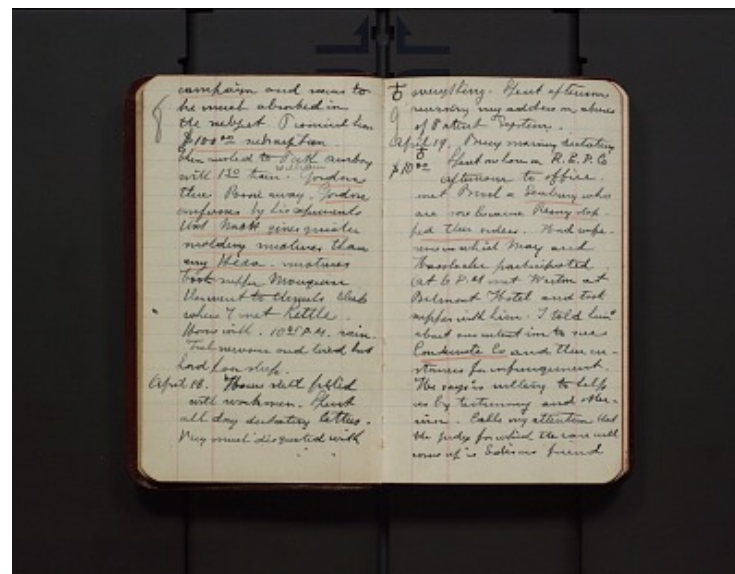 campaign and seems to
be much absorbed in
the subject Promised him
$100.00 subscription
then motored to Perth Amboy
with 1 30 train.
there Rossi away.
confesses by his experiments
that gives quicker
molding mixtures than
any Hexa. mixtures
took supper
then went to Chemists Club
where I met Kettle.
Home with 10 P.M. train.
Feel nervous and tired but
hard for sleep.
April 18. House still filled
with workmen. Spent
all day dictating letters.
Very much disgusted with
everything. Spent afternoon
rewriting my address on abuses
of Patent System.
April 19. Busy morning dictating
$10.00 Spent one hour in R.E.P. Co
afternoon to office.
met & Seabury who
are sore because
ped their orders. Had confe-
rence in which May and
Hasslacher participated
At 6 P.M met Weston at
Belmont Hotel and took
supper with him. I told him
about our intention to sue
Condensite Co and their cu-
stomers for infringement.
He says is willing to help
us by testimony and other-
wise. Calls my attention that
the judge for which the case will
come up is Edisons friend